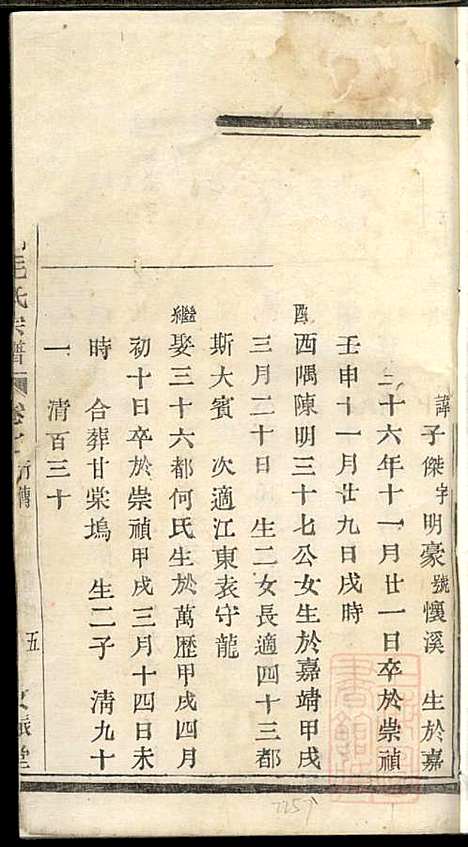 諱子傑字明豪號懷溪　生於嘉
三十六年十一月廿一日卒於崇禎
壬申十一月廿九日戌時
配西隅陳明三十七公女生於嘉靖甲戌
三月二十日　生二女長適四十三都
斯大賓　次適江東袁守龍
繼娶三十六都何氏生於萬歷甲戌四月
初十日卒於崇禎甲戌三月十四日未
時　合葬甘棠塢　生二子　清九十
一　清百三十
毛氏宗譜　卷　行傳　五
2257